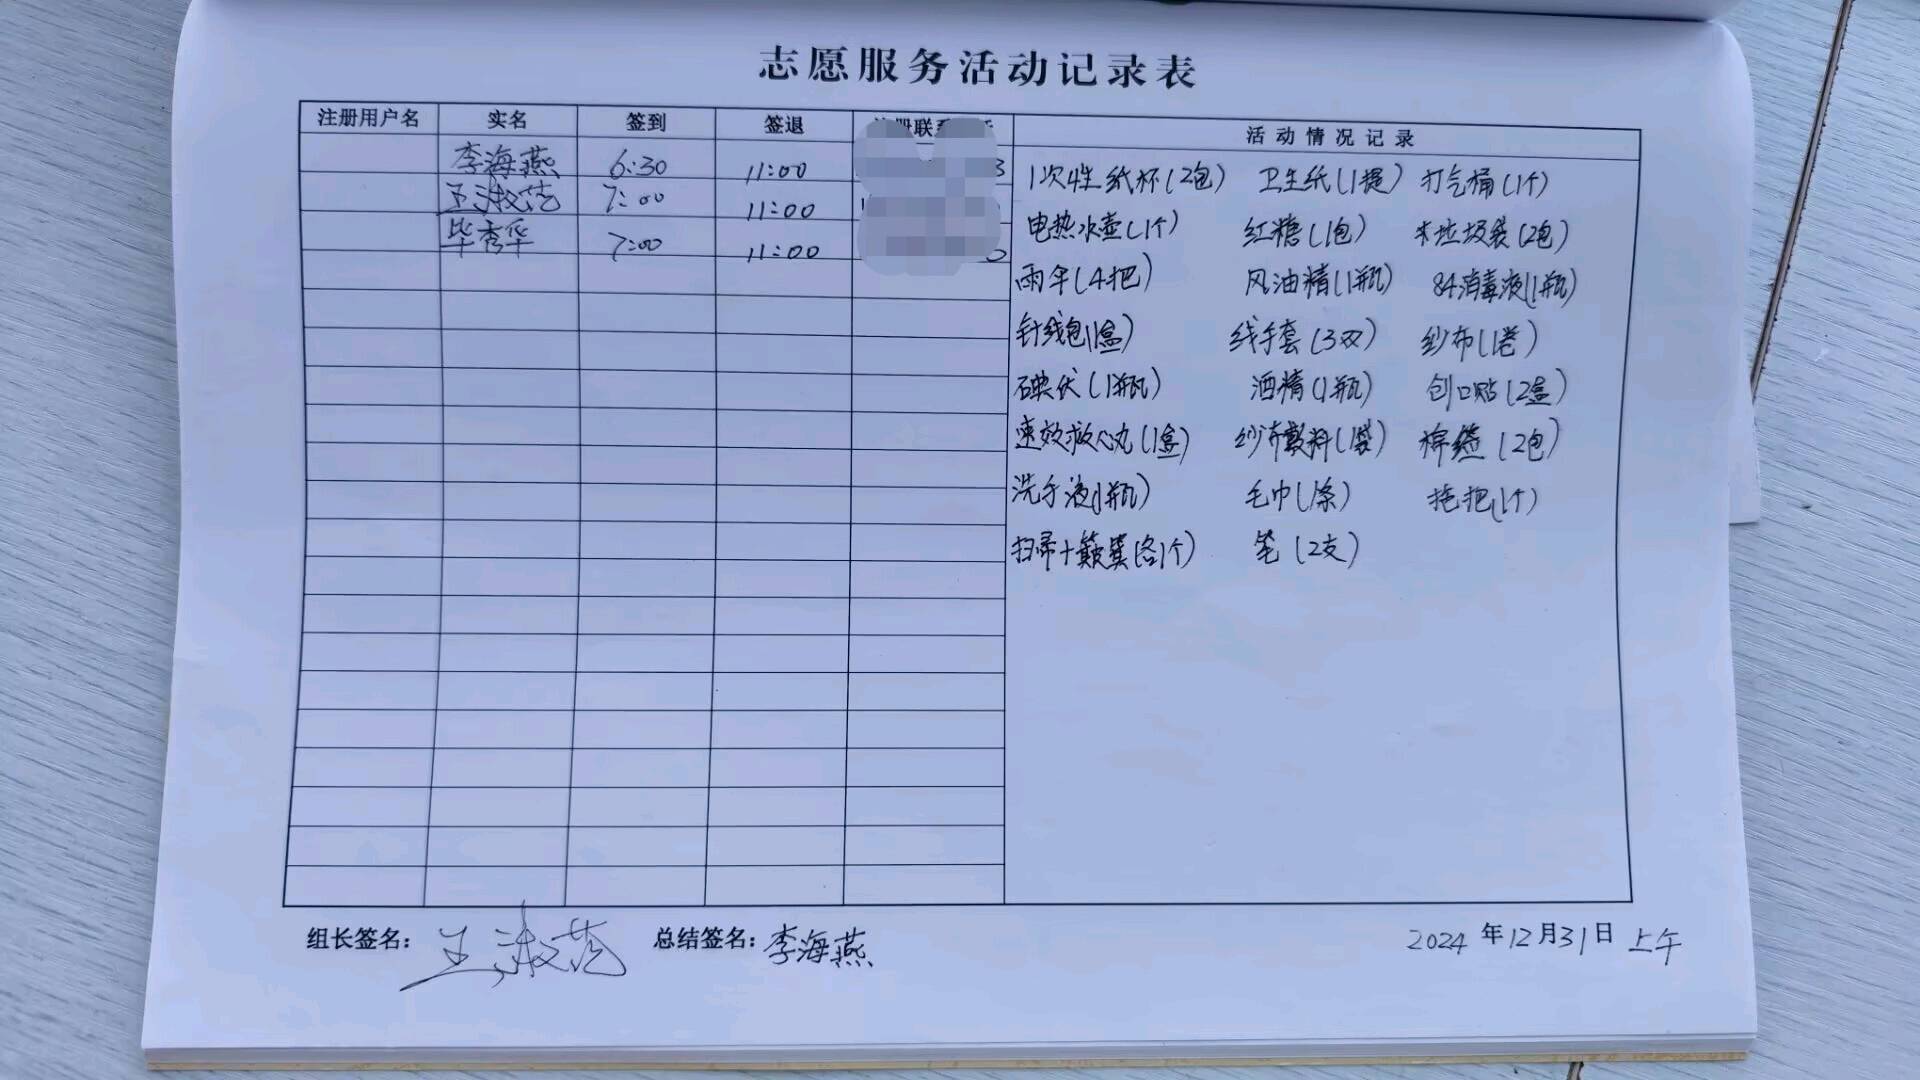 志愿服务活动记录表
注册用户名 实名 签到 签退 活动情况记录
李海燕 6:30 11:00
王淑范 7:00 11:00
毕秀华 7:00 11:00
1次性纸杯(2包) 卫生纸(1提) 打气桶(1个)
电热水壶(1个) 红糖(1包) 垃圾袋(2包)
雨伞(4把) 风油精(1瓶) 84消毒液(1瓶)
针线包(1盒) 线手套(3双) 纱布(1卷)
碘伏(1瓶) 酒精(1瓶) 创口贴(2盒)
速效救心丸(1盒) 纱布敷料(1袋) 棉签(2包)
洗手液(1瓶) 毛巾(1条) 拖把(1个)
扫帚+簸箕(各1个) 笔(2支)
组长签名: 王淑范 总结签名: 李海燕 2024年12月31日 上午